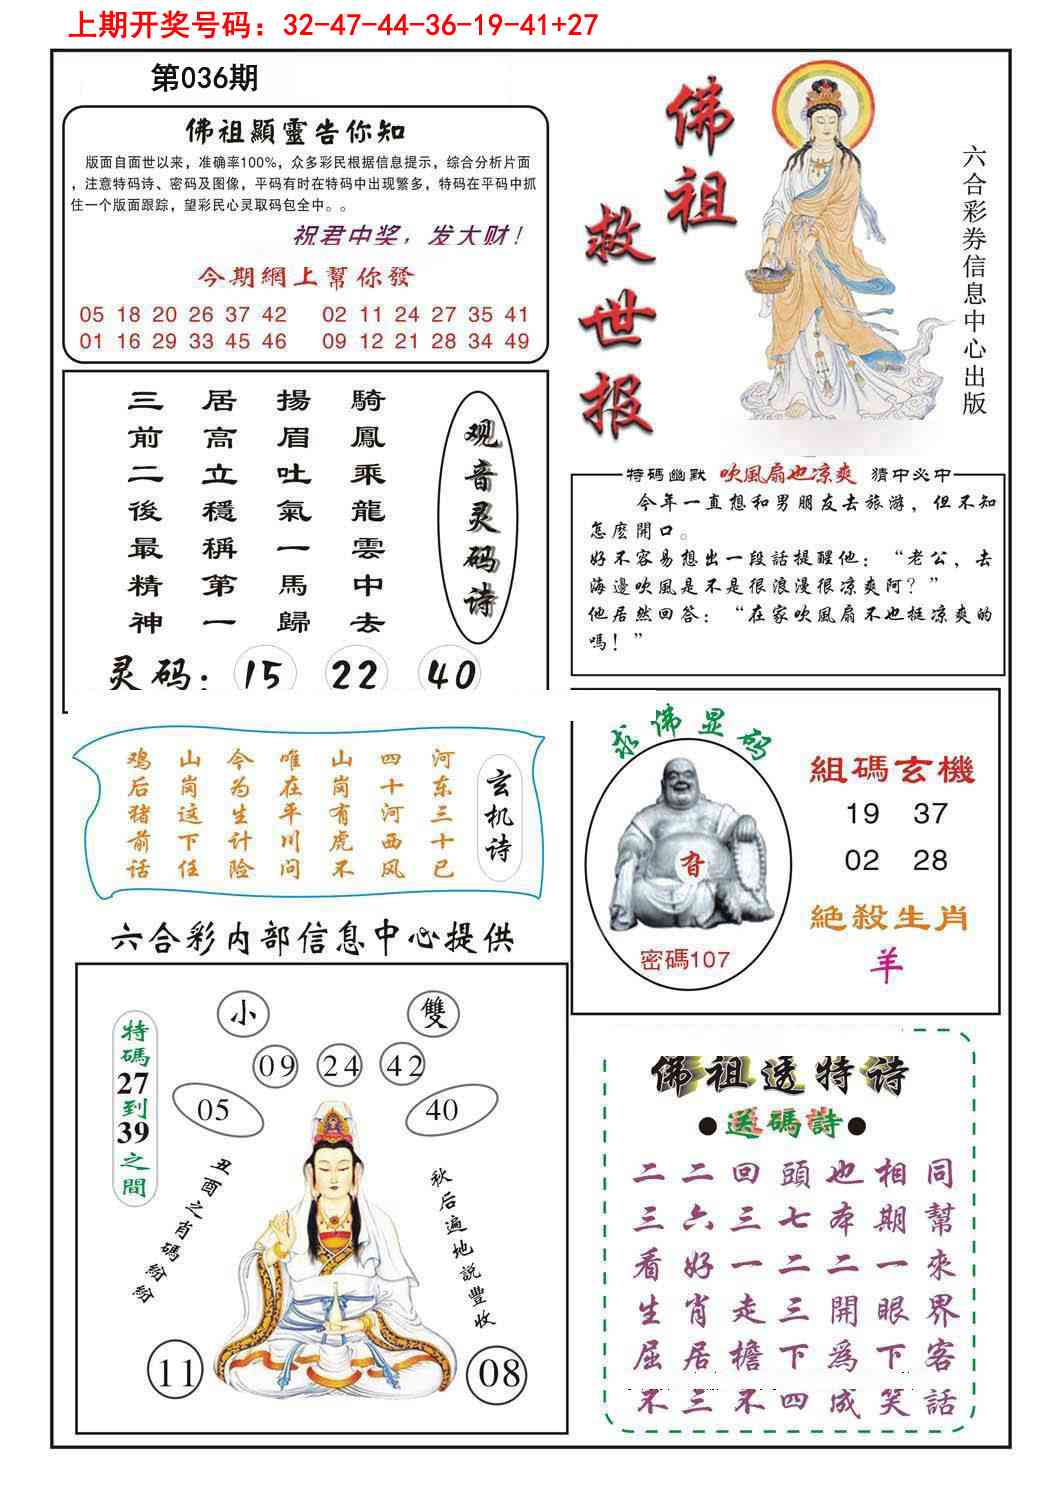 上期开奖号码：32-47-44-36-19-41+27
第036期
佛祖顯靈告你知
版面自面世以来，准确率100%，众多彩民根据信息提示，综合分析片面
，注意特码诗、密码及图像，平码有时在特码中出现繁多，特码在平码中抓
住一个版面跟踪，望彩民心灵取码包全中。。
祝君中奖，发大财！
今期網上幫你發
05 18 20 26 37 42 02 11 24 27 35 41
01 16 29 33 45 46 09 12 21 28 34 49
佛祖
救世报
六合彩券信息中心出版
观音灵码诗
騎鳳乘龍雲中去
揚眉吐氣一馬歸
居高立穩稱第一
三前二後最精神
灵码：15 22 40
特碼幽默 吹風扇也凉爽 猜中必中
今年一直想和男朋友去旅游，但不知
怎麽開口。
好不容易想出一段話提醒他：“老公，去
海邊吹風是不是很浪漫很凉爽阿？”
他居然回答：“在家吹風扇不也挺凉爽的
嗎！”
玄机诗
河东三十已
四十河西风
山岗有虎不
唯在平川问
今为生计险
山岗这下任
鸡后猪前话
求佛显码
密碼107
組碼玄機
19 37
02 28
絕殺生肖
羊
六合彩内部信息中心提供
特碼27到39之間
小 雙
09 24 42
05 40
丑酉之肖碼紛紛
秋后遍地説豐收
11 08
佛祖透特诗
●送碼詩●
二二回頭也相同
三六三七本期幫
看好一二二一來
生肖走三開眼界
屈居檐下爲下客
不三不四成笑話